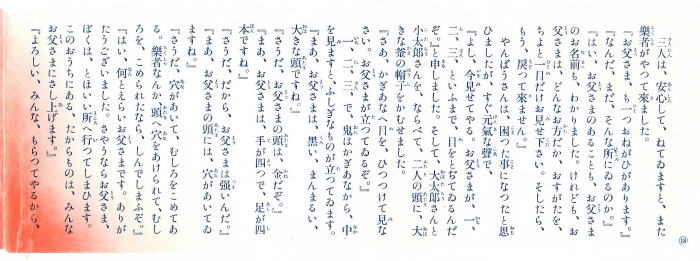 三人は、安心して、ねてゐますと、また
樂者がやつて來ました。
『お父さま、も一つおねがひがあります。』
『なんだ、まだ、そんな所にゐるのか。』
『はい、お父さまのあることも、お父さま
のお名前も、わかりました。けれども、お
父さまは、どんなお方だか、おすがたを、
ちよと一目だけお見せ下さい。そしたら、
もう、戻つて來ません。』
やんばうさんは、困つた事になつたと思
ひましたが、すぐ元氣な聲で、
『よし、今見せてやる。お父さまが、一、
二、三、といふまで、目をとぢてゐるんだ
ぞ。』と申しました。そして、大太郎さんと
小太郎さんを、ならべて、二人の頭に、大
きな釜の帽子をかむせました。
『さあ、かぎあな へ目を、ひつつけて見な
さい。お父さまが立つてゐるぞ。』
一、二、三、で、鬼はかぎあなから、中
を見ますと、ふしぎなものが立つてゐます。
『まあ、お父さまは、黑い、まんまるい、
大きな頭ですね。』
『さうだ、お父さまの頭は、金だぞ。』
『まあ、お父さまは、手が四つで、足が四
本ですね。』
『さうだ、だから、お父さまは强いんだ。』
『まあ、お父さまの頭には、穴があいてゐ
ますね。』
『さうだ、穴があいて、むしろをこめてあ
る。樂者なんか、頭へ穴をあけられて、むし
ろを、こめられたなら、しんでしまふぞ。』
『はい、何とえらいお父さまです。ありが
たうございました。さやうならお父さま、
ぼくは、とほいい所へ行つてしまひます。
このおうちにある、たからものは、みんな
お父さまにさし上げます。』
『よろしい、みんな、もらつてやるから、
⑱